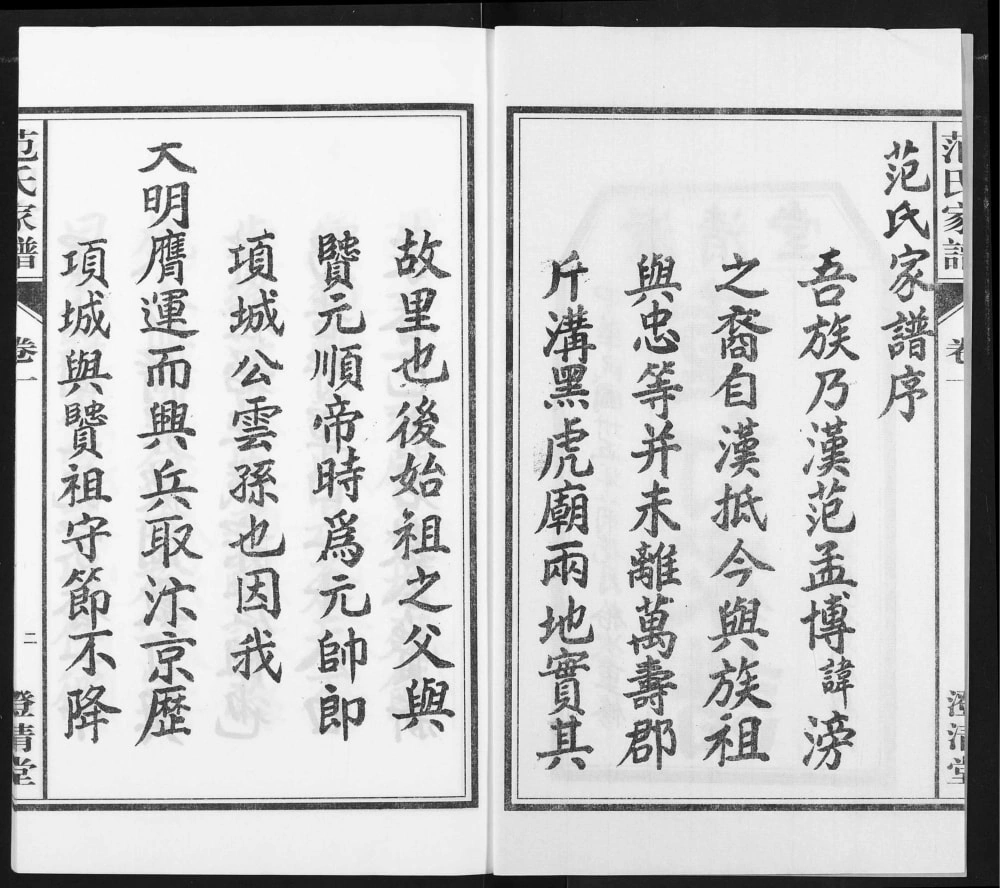 范氏家譜
卷一
澄清堂
范氏家譜序
吾族乃漢范孟博諱滂
之裔自漢抵今與族祖
與忠等并未離萬壽郡
斤溝黑虎廟兩地實其
故里也後始祖之父與
贒元順帝時爲元帥郎
項城公雲孫也因我
大明膺運而興兵取汴京歷
項城與贒祖守節不降
范氏家譜
卷一
二
澄清堂